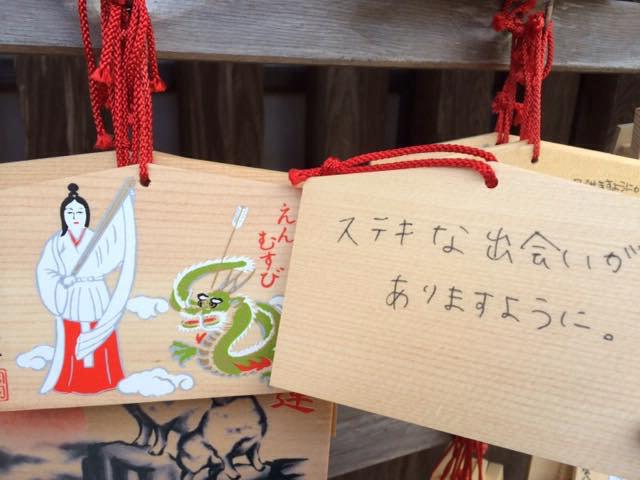 えん
むすび
ステキな出会いが
ありますように。